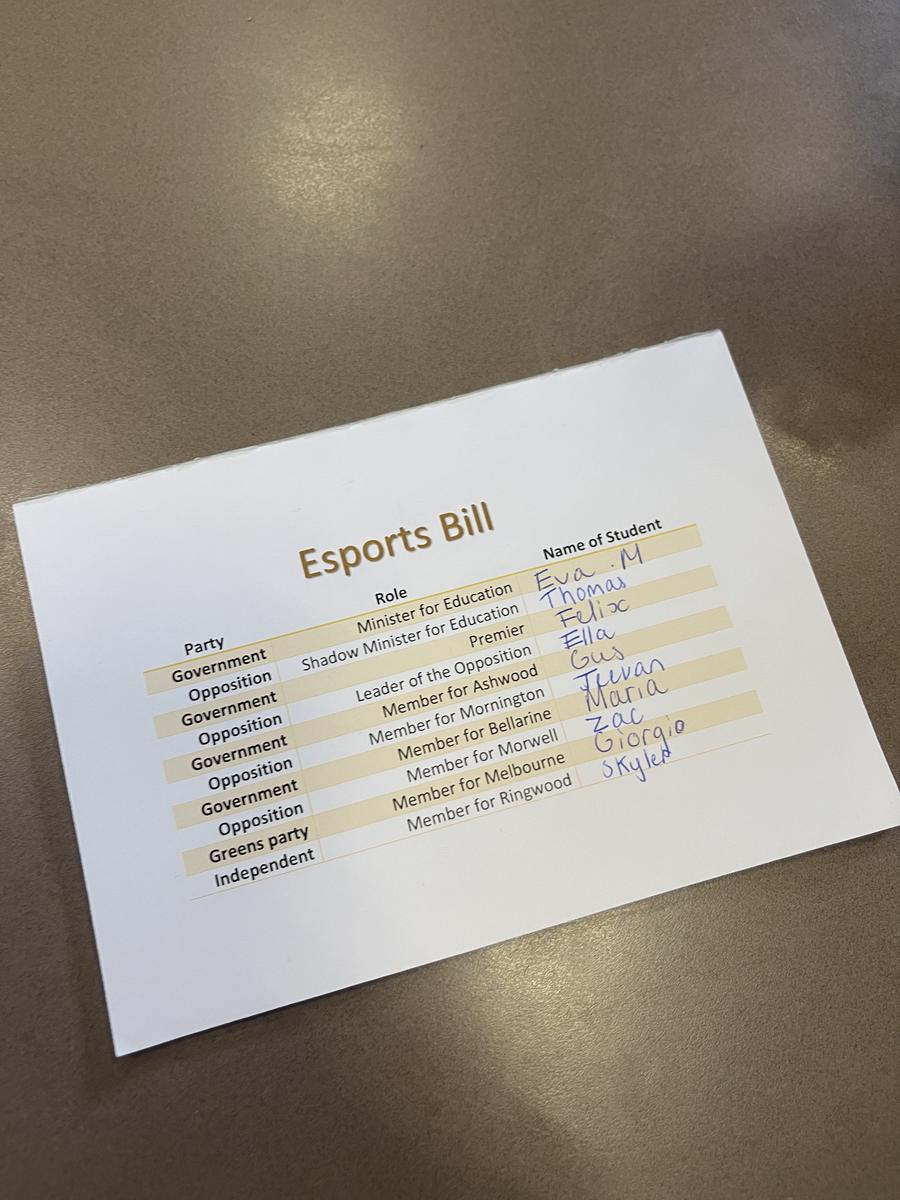 Esports Bill
Party Role Name of Student
Government Minister for Education Eva . M
Opposition Shadow Minister for Education Thomas
Government Premier Felix
Opposition Leader of the Opposition Ella
Government Member for Ashwood Gus
Opposition Member for Mornington
Government Member for Bellarine Maria
Opposition Member for Morwell Zac
Greens party Member for Melbourne Giorgio
Independent Member for Ringwood Skyler